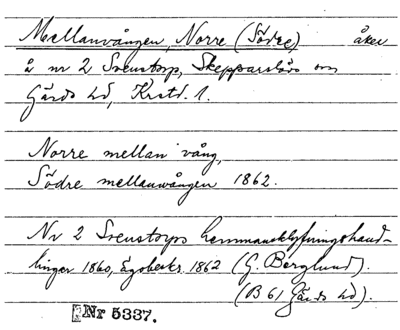 Mellanvången, Norre (Södre), åker
å nr 2 Svenstorp, Skepparslövs sn
Gärds hd, Krstd. l.
Norre mellan vång,
Södre mellanvången 1862.
Nr 2 Svenstorps hemmansklyfningshand-
lingar 1860, Egobeskr. 1862 (G. Berglund).
(B 61 Gärds hd).
Nr 5337.